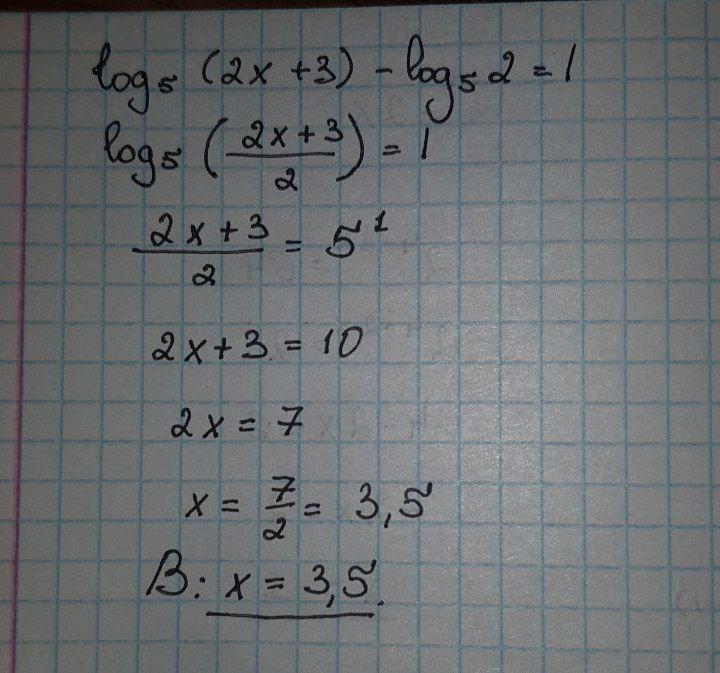 log₅ (2x + 3) - log₅ 2 = 1
log₅ ((2x + 3)/2) = 1
(2x + 3)/2 = 5¹
2x + 3 = 10
2x = 7
x = 7/2 = 3,5
В: x = 3,5.